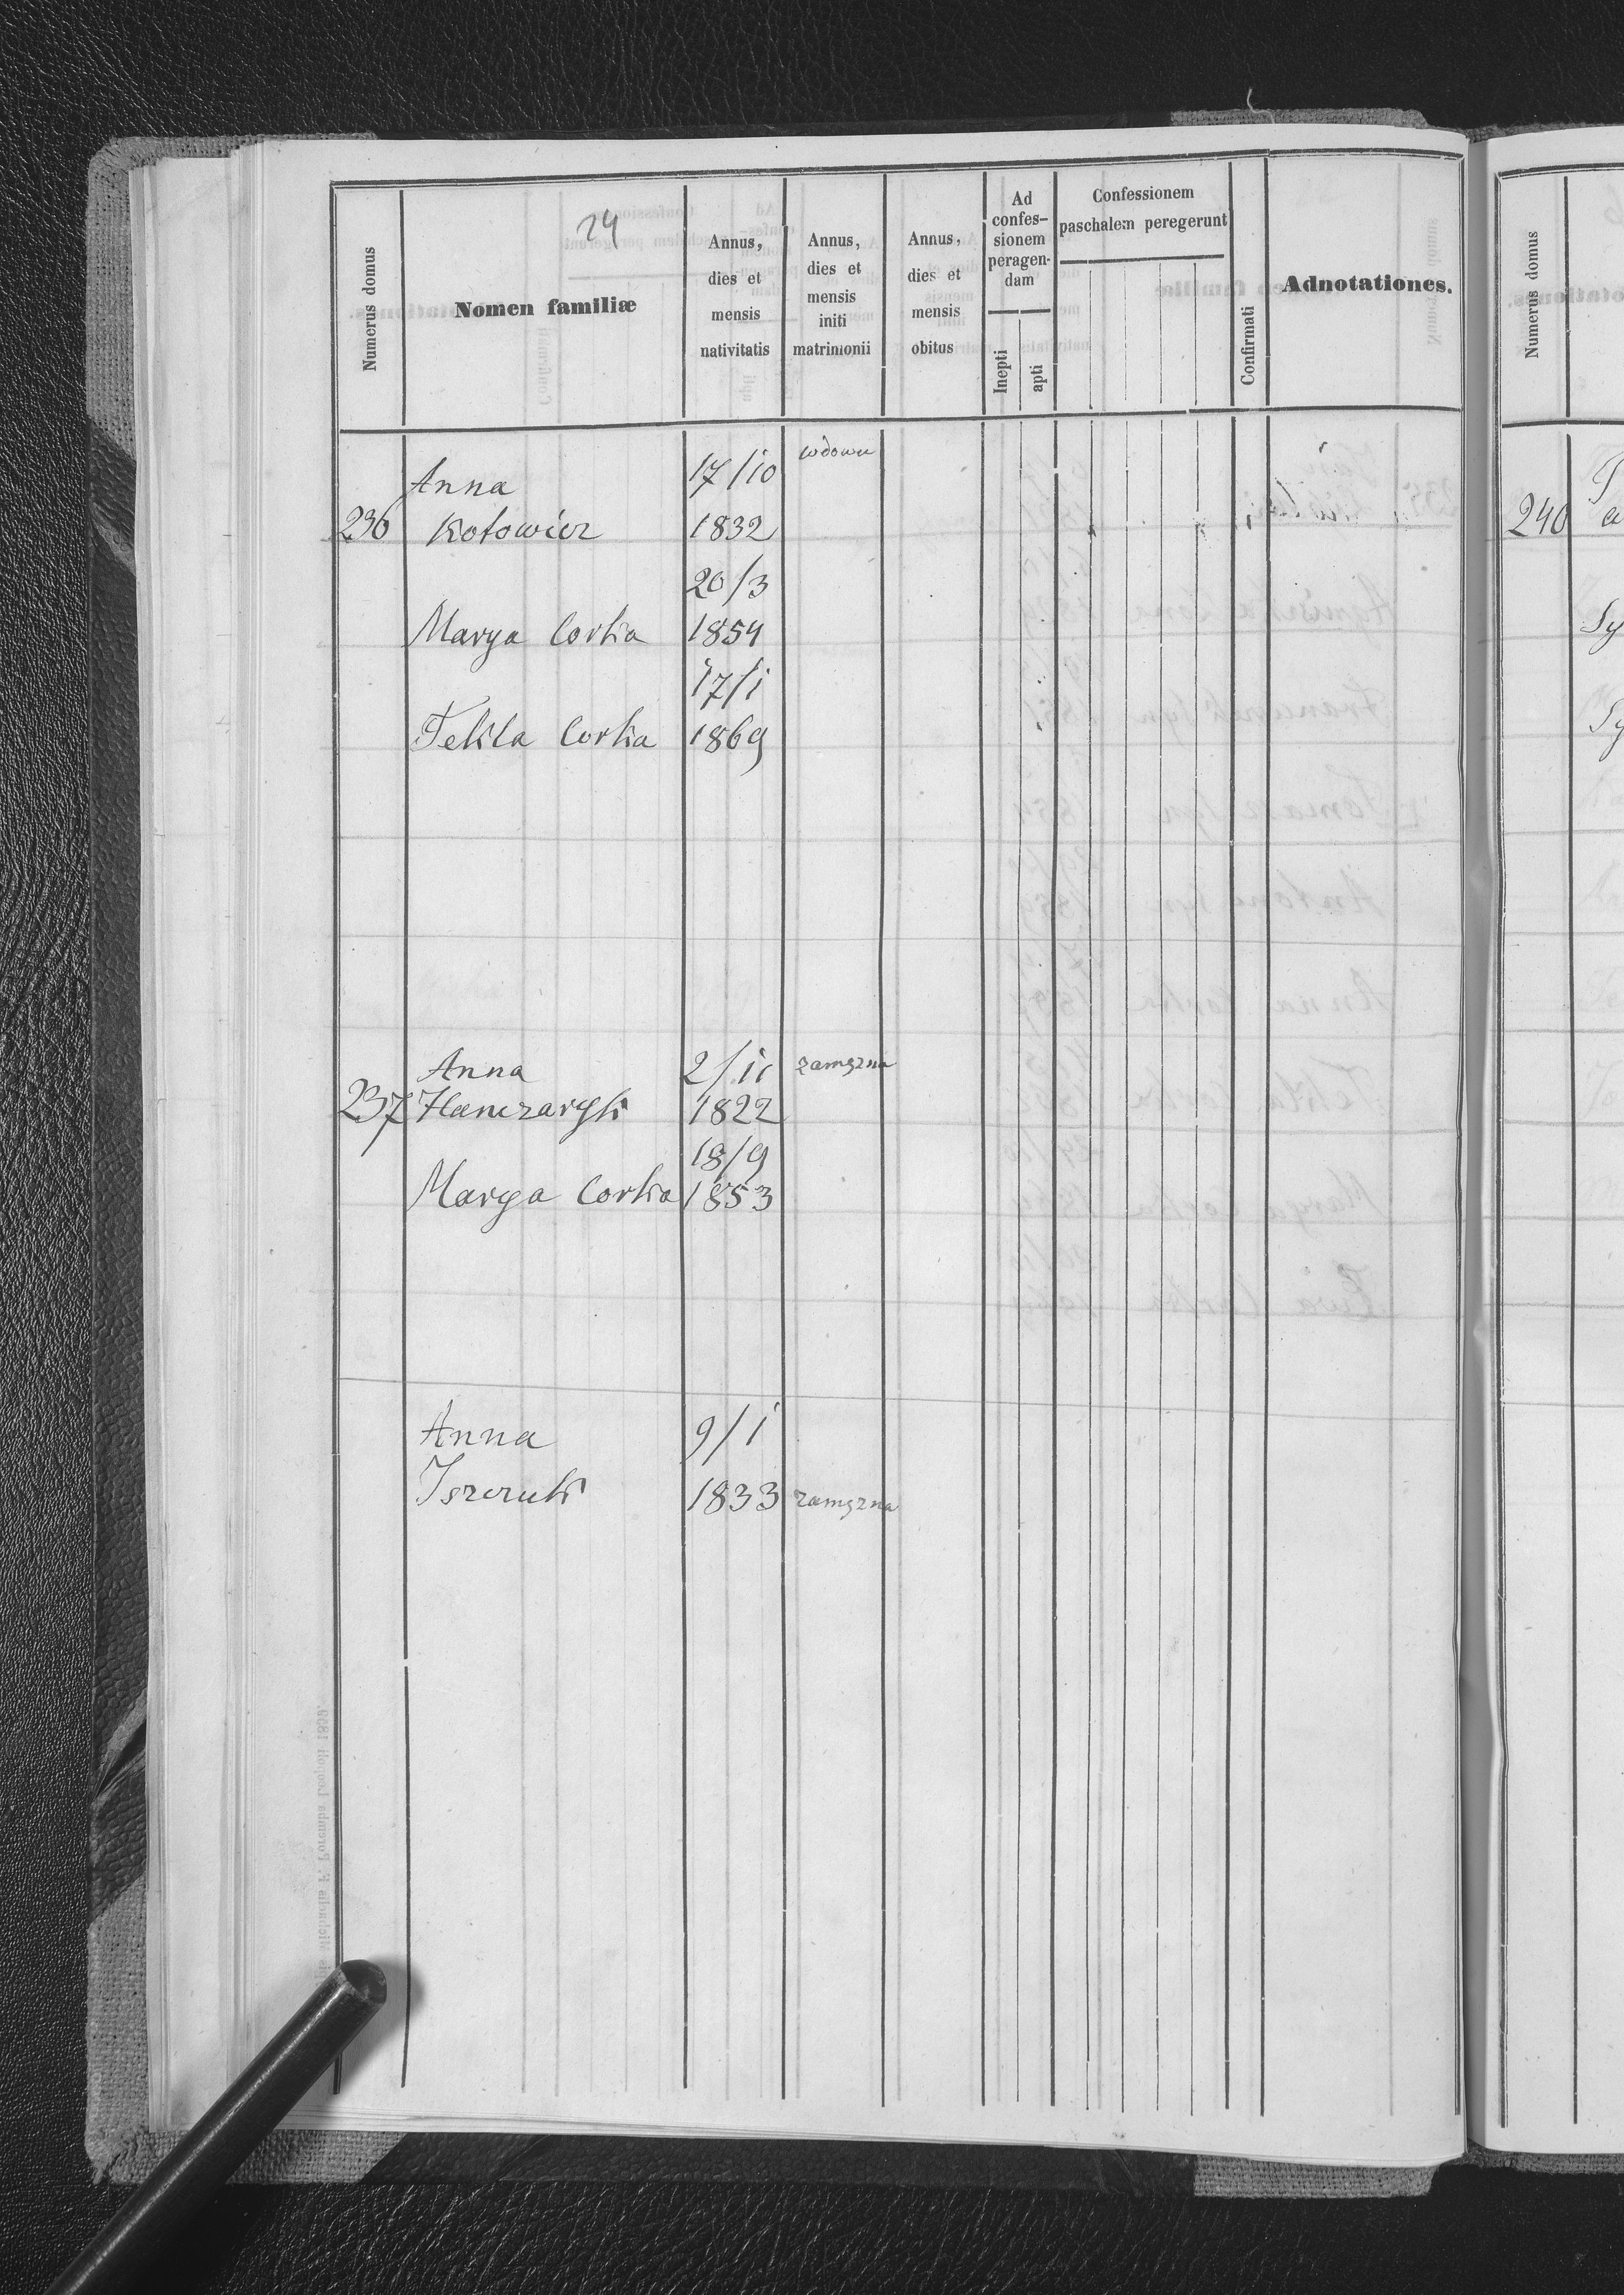 24
Numerus domus
Nomen familiæ
Annus,
dies et
mensis
nativitatis
Annus,
dies et
mensis
initi
matrimonii
Annus,
dies et
mensis
obitus
Ad
confes-
sionem
peragen-
dam
Inepti
apti
Confessionem
paschalem peregerunt
Confirmati
Adnotationes.
Numerus domus
Anna 17/10 wdowa
236 Kotowicz 1832
240
20/3
Marya Corka 1854
Sy
17/1
Tekla Corka 1869
Sy
Anna 2/11 zamęzna
237 Hanczaryk 1822
18/9
Marya Corka 1853
Anna 9/1
Iszczuk 1833 zamęzna